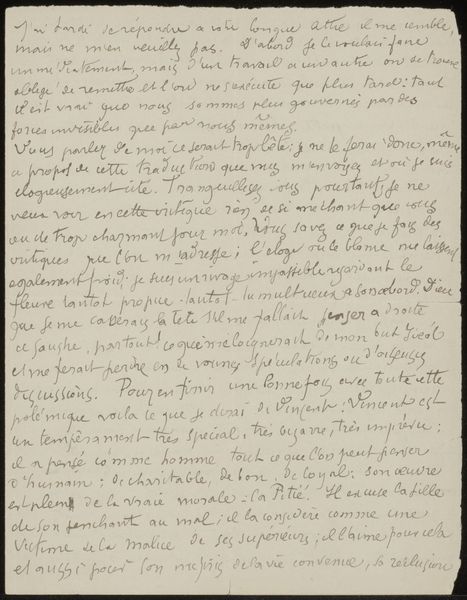 J'ai tardé de répondre a votre longue lettre il me semble,
mais ne m'en veuillez pas. D'abord je le voulais faire
immédiatement, mais d'un travail a un autre on se trouve
obligé de remettre et l'on ne s'execute que plus tard: tant
il est vrai que nous sommes plus gouvernés par des
forces invisibles que par nous mêmes.
Vous parlez de moi ce serait trop bête; je ne le ferai donc, même
a propos de cette traduction que vous m'envoyez et où je suis
elogieusement cité. Tranquillisez vous pourtant, je ne
veux voir en cette critique rien de si méchant que vous
ou de trop charmant pour moi, Vous savez ce que je fais des
critiques que l'on m'adresse; l'éloge ou le blame me laissent
egalement froid: je suis un rivage impassible regardant le
fleuve tantot propre tantot tumultueux a son abord. Dieu
que je me casserais la tete s'il me fallait penser a droite
et gauche, partout! ce que m'éloignerait de mon but idéal
et me ferait perdre en de vaines spéculations ou d'oiseuses
discussions. Pour en finir une bonne fois avec toute cette
polémique voila ce que je dirai de Vincent: Vincent est
un tempérament très spécial, très bizarre, très imprévu;
il a pensé comme homme tout ce que l'on peut penser
d'humain; de charitable, de bon, de loyal: son œuvre
est plein de la vraie morale: la Pitié. Il excuse la fille
de son penchant au mal; il la considère comme une
victime de la malice de ses supérieurs; il l'aime pour cela
et aussi pour son mépris de la vie convenue, sa réclusion